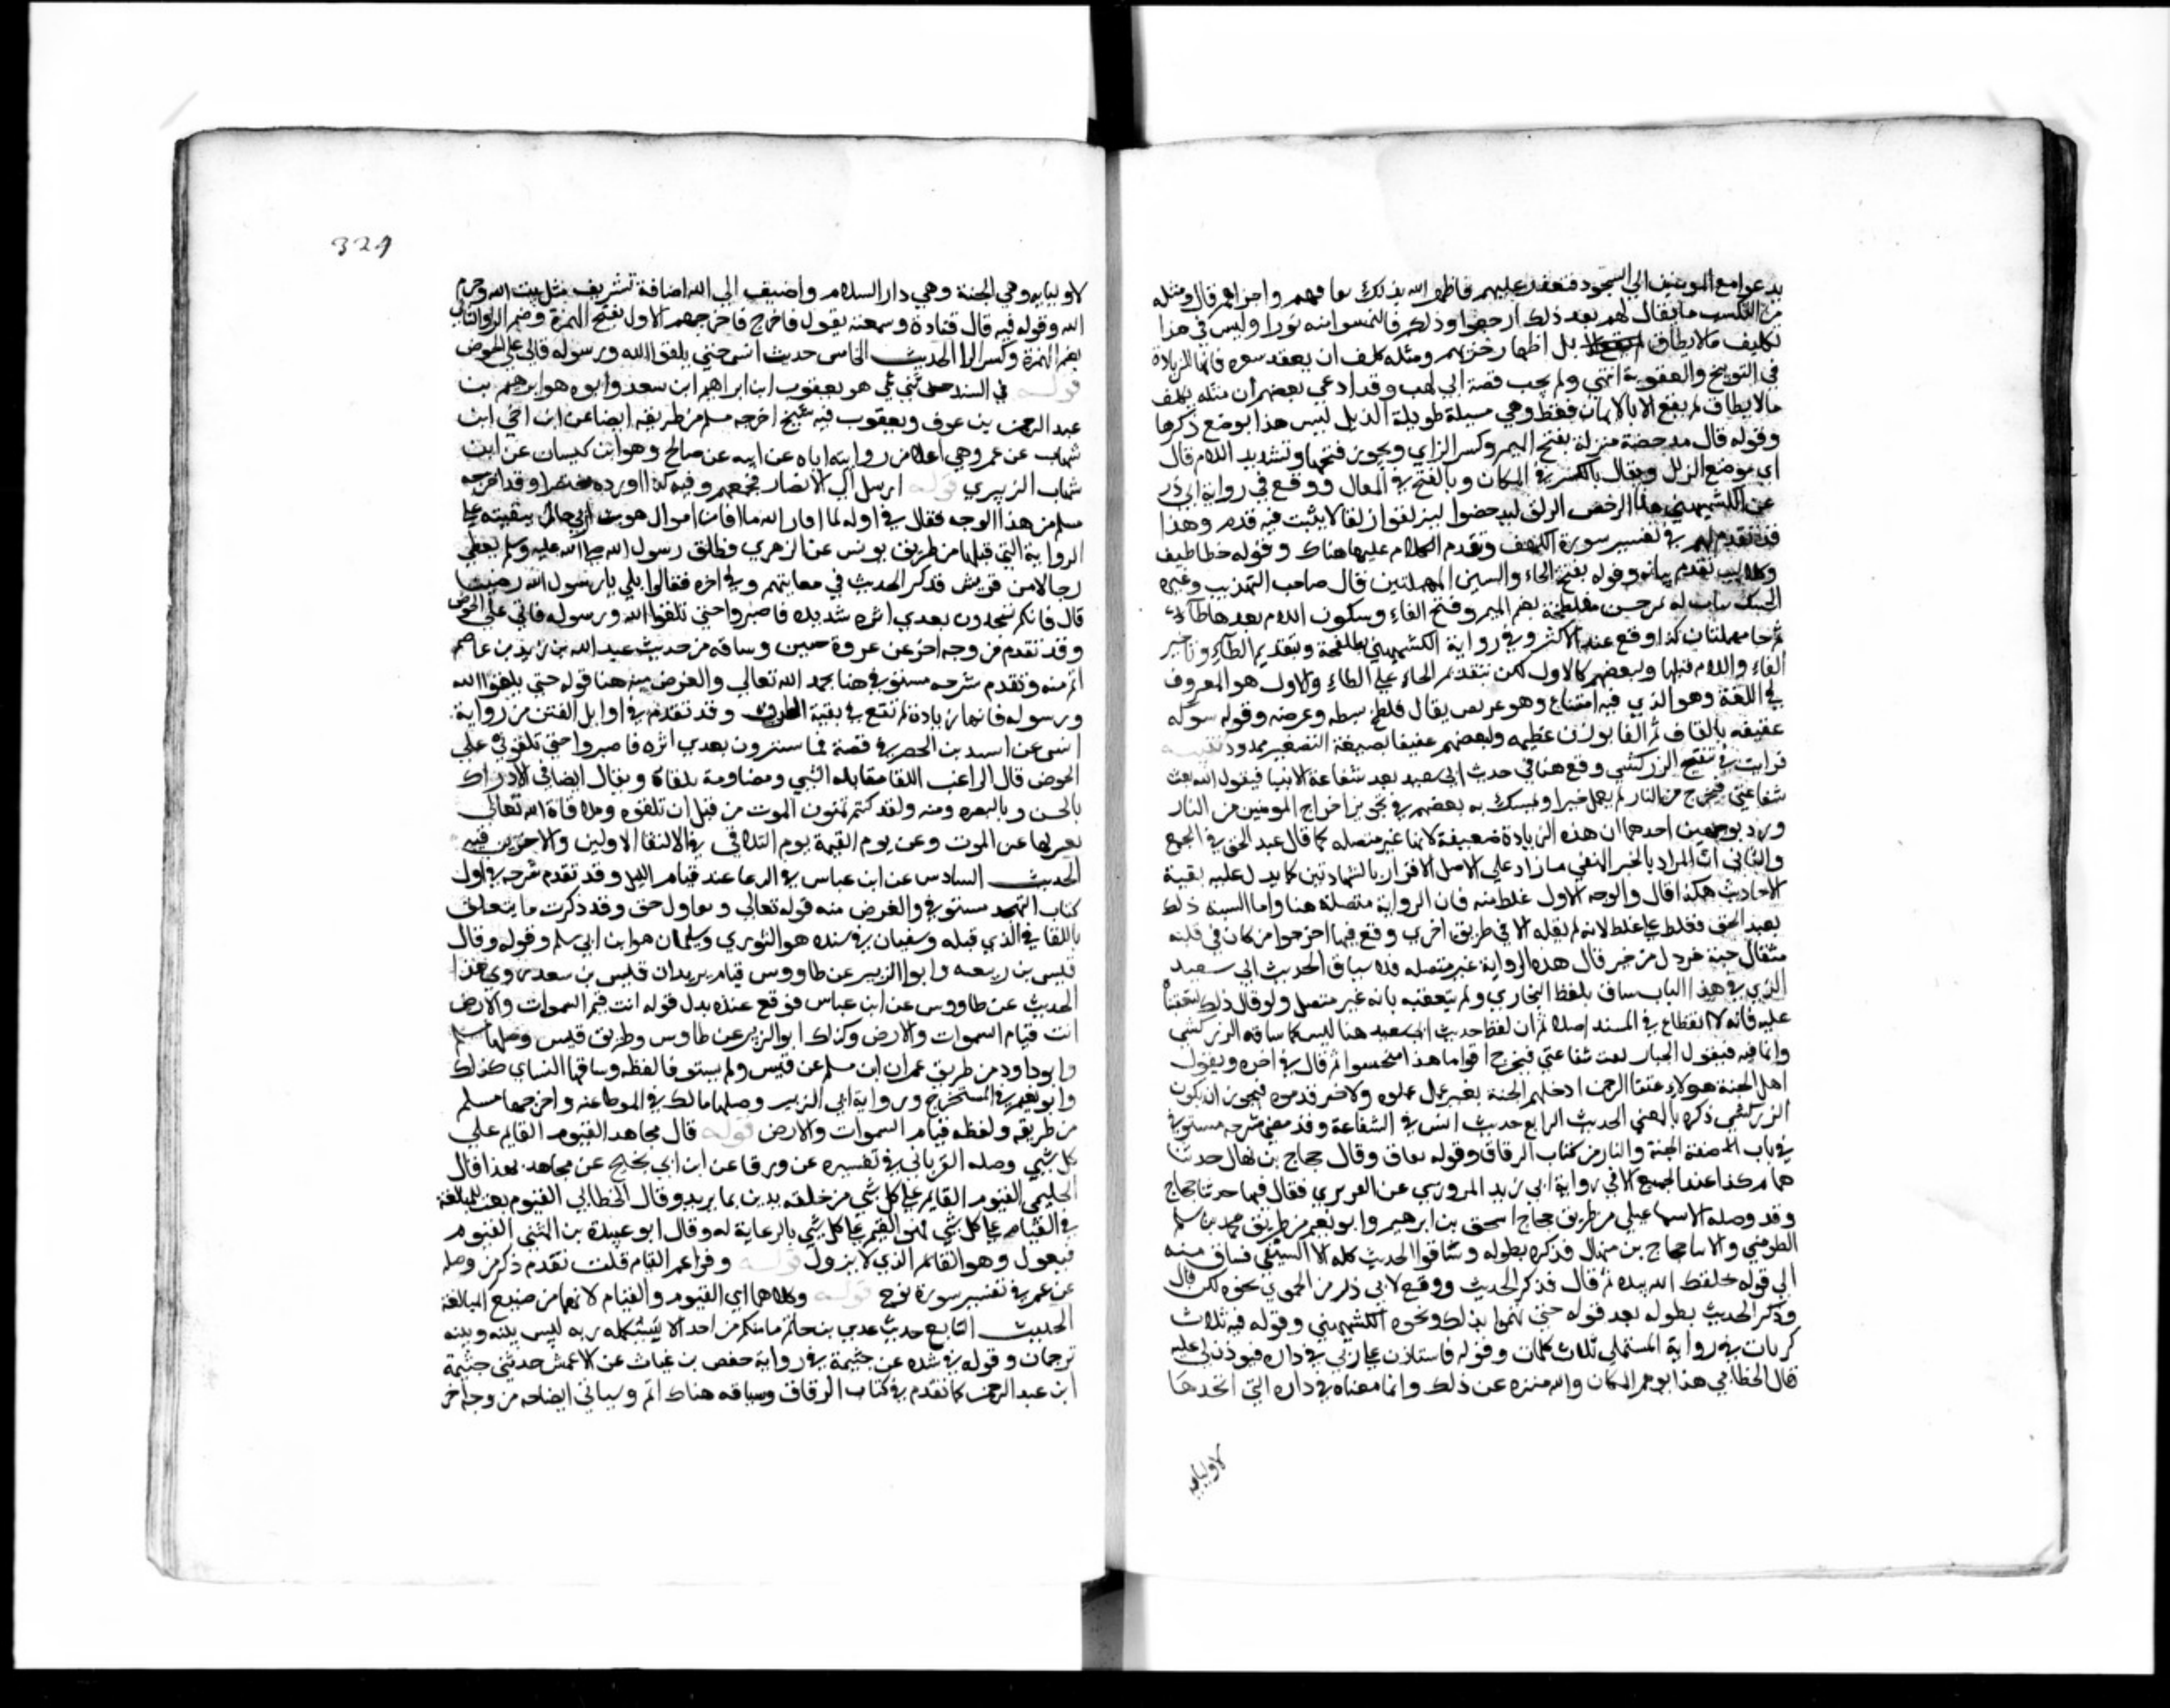 يدعوا مع المومنين الي السجود فتعذر عليهم فاظهر الله بذلك نفاقهم واخزاهم قال ومثله
من التكليف ما يقال لهم بعد ذلك ارجعوا وراكم فالتمسوا نورا وليس في هذا
تكليف ما لا يطاق بل اظهار خزيهم ومثله كلف ان يعقد شعيره فانها للزيادة
في التوبيخ والعقوبة انتهي ولم يجب قصة ابي لهب وقد ادعي بعضهم ان مثله تكلف
ما لا يطاق لم يقع الا بالايمان فقط وهي مسيلة طويلة الذيل ليس هذا موضع ذكرها
وقوله قال مدحضة مزلة بفتح الميم وكسر الزاي ويجوز فتحها وتشديد اللام قال
اي موضع الزلل ويقال بالكسر في المكان وبالفتح في المقال ووقع في رواية ابي ذر
عن الكشميهني هنا الدحض الزلق ليدحضوا ليزلقوا زلقا لا يثبت فيه قدم وهذا
قد تقدم لهم في تفسير سورة الكهف وتقدم الكلام عليها هناك وقوله خطاطيف
وكلاليب تقدم بيانه وقوله بفتح الحاء والسين المهملتين قال صاحب التهذيب وغيره
الحسك نبات له ثمر خشن مفلطحة بضم الميم وفتح الفاء وسكون اللام بعدها طآء
ثم حا مهملتان كذا وقع عند الاكثر وفي رواية الكشميهني مطلفحة وتقديم الطآء وتاخير
الفاء واللام قبلها ولبعضهم كالاول لكن بتقديم الحاء علي الطاء والاول هو المعروف
في اللغة وهو الذي فيه اتساع وهو عريض يقال فلطح بسطه وعرضه وقوله شوكه
عقيفه بالقاف ثم الفا بوزن عظيمه ولبعضهم عقيفا بصيغة التصغير ممدود تنبيه
قرات في تنقيح الزركشي وقع هنا في حديث ابي سعيد بعد شفاعة الانبيا فيقول الله بقيت
شفاعتي فيخرج من النار من لم يعمل خيرا وتمسك به بعضهم في تجويز اخراج غير المومنين من النار
ورد بوجهين احدهما ان هذه الزيادة ضعيفة لانها غير متصله كما قال عبد الحق في الجمع
والثاني ان المراد بالخير المنفي ما زاد علي الاصل الاقرار بالشهادتين كما يدل عليه بقية
الاحاديث هكذا قال والوجه الاول غلط منه فان الرواية متصلة هنا واما نسبة ذلك
لعبد الحق فغلط علي غلط لانه لم يقله الا في طريق اخري وقع فيها اخرجوا من كان في قلبه
مثقال حبة خردل من خير قال هذه الرواية غير متصله فلما ساق الحديث ابي سعيد
الذي في هذا الباب ساقه بلفظ البخاري ولم يتعقبه بانه غير متصل ولو قال ذلك لتعقبناه
عليه فانه لا انقطاع في السند اصلا ثم ان لفظ حديث ابي سعيد هنا ليس كما ساقه الزركشي
وانما فيه فيقول الجبار بقيت شفاعتي فيخرج اقواما قد امتحشوا ثم قال في اخره ويقول
اهل الجنة هولاء عتقا الرحمن ادخلهم الجنة بغير عمل عملوه ولا خير قدموه فيجوز ان يكون
الزركشي ذكره بالمعني الحديث الرابع حديث انس في الشفاعة وقد مضي شرحه مستوفي
في باب صفة الجنة والنار من كتاب الرقاق وقوله هنا وقال حجاج بن منهال حدثنا
همام كذا عند الجميع الا في رواية ابي زيد المروزي عن الفربري فقال فيها حدثنا حجاج
وقد وصله الاسماعيلي من طريق حجاج اسحق بن ابرهيم وابو نعيم من طريق محمد بن اسلم
الطوسي قالا ثنا حجاج بن منهال فذكره بطوله وساقوا الحديث كله الا النسفي فساق منه
الي قوله خلقك الله بيده ثم قال فذكر الحديث ووقع لابي ذر عن الحموي نحوه لكن قال
وذكر الحديث بطوله بعد قوله حتي يهموا بذلك ونحوه للكشميهني وقوله فيه ثلاث
كذبات في رواية المستملي ثلاث كلمات وقوله فاستاذن علي ربي في داره فيوذن لي عليه
قال الخطابي هذا يوهم المكان والله منزه عن ذلك وانما معناه في داره التي اتخذها
لاوليايه
329
لاوليايه وهي الجنة وهي دار السلام واضيف الي الله اضافة تشريف مثل بيت الله وحرم
الله وقوله فيه قال قتادة وسمعته يقول فاخرج فاخرجهم الاول بفتح الهمزة وضم الرا والثاني
بضم الهمزة وكسر الرا الحديث الخامس حديث انس حتي يلقوا الله ورسوله فاني علي الحوض
قوله في السند حدثني عمي هو يعقوب ابن ابراهيم ابن سعد وابوه هو ابرهيم بن
عبد الرحمن بن عوف ويعقوب فيه شيخ اخرجه مسلم من طريقه ايضا عن ابن اخي ابن
شهاب عن عمه وهي اعلا من روايته اياه عن ابيه عن صالح وهو ابن كيسان عن ابن
شهاب الزهري قوله ارسل الي الانصار فجمعهم وفيه كذا اورده مختصرا وقد اخرجه
مسلم من هذا الوجه فقال في اوله لما افاء الله ما افا من اموال هوازن ثم احال ببقيته علي
الرواية التي قبلها من طريق يونس عن الزهري فطفق رسول الله صلي الله عليه وسلم يعطي
رجالا من قريش فذكر الحديث في معاتبتهم وفي اخره فقالوا بلي يا رسول الله رضينا
قال فانكم ستجدون بعدي اثره شديده فاصبروا حتي تلقوا الله ورسوله فاني علي الحوض
وقد تقدم من وجه اخر عن غزوة حنين وساقه من حديث عبد الله بن زيد بن عاصم
اتم منه وتقدم شرحه مستوفي هنا بحمد الله تعالي والغرض منه هنا قوله حتي يلقوا الله
ورسوله فانها زيادة لم تقع في بقية الطرق وقد تقدم في اوايل الفتن من رواية
انس عن اسيد بن الحضير في قصة فيها سترون بعدي اثره فاصبروا حتي تلقوني علي
الحوض قال الراغب اللقا مقابلة الشي ومصادفته يلقاه ويقال ايضا في الادراك
بالحس وبالبصره ومنه ولقد كنتم تمنون الموت من قبل ان تلقوه وملاقاة الله تعالي
يعبر بها عن الموت وعن يوم القيمة يوم التلاقي في الالتقا الاولين والاخرين فيه
الحديث السادس عن ابن عباس في الدعا عند قيام الليل وقد تقدم شرحه في اول
كتاب التهجد مستوفي والغرض منه قوله تعالي وقاول حق وقد ذكرت ما يتعلق
باللقا في الذي قبله وسفيان في سنده هو الثوري وسليمان هو ابن ابي مسلم وقوله وقال
قيس بن ربيعه وابو الزبير عن طاووس قيام يريد ان قيس بن سعد روي هذا
الحديث عن طاووس عن ابن عباس فوقع عنده بدل قوله انت قيم السموات والارض
انت قيام السموات والارض وكذلك ابو الزبير عن طاوس وطريق قيس وصلها مسلم
وابو داود من طريق عمران ابن مسلم عن قيس ولم يستوفا لفظه وساقها النساي كذلك
وابو نعيم في المستخرج ورواية ابي الزبير وصلها مالك في الموطا عنه واخرجها مسلم
من طريقه ولفظه قيام السموات والارض قوله قال مجاهد القيوم القايم علي
كل شي وصله الفريابي في تفسيره عن ورقا عن ابن ابي نجيح عن مجاهد بهذا قال
الحليمي القيوم القايم علي كل شي من خلقه يدبره بما يريد وقال الخطابي القيوم نعت للمبالغة
في القيام علي كل شي فهو القيم علي كل شي بالرعاية له وقال ابو عبيدة بن المثني القيوم
فيعول وهو القائم الذي لا يزول قوله وقرا عمر القيام قلت تقدم ذكر من وصله
عن عمر في تفسير سورة نوح قوله وكلاهما اي القيوم والقيام لانهما من صيغ المبالغة
الحديث السابع حديث عدي بن حاتم ما منكم من احد الا سيكلمه ربه ليس بينه وبينه
ترجمان وقوله في سنده عن خيثمة في رواية حفص بن غياث عن الاعمش حدثني خيثمة
ابن عبد الرحمن كما تقدم في كتاب الرقاق وسياقه هناك اتم وسياتي ايضا من وجه اخر